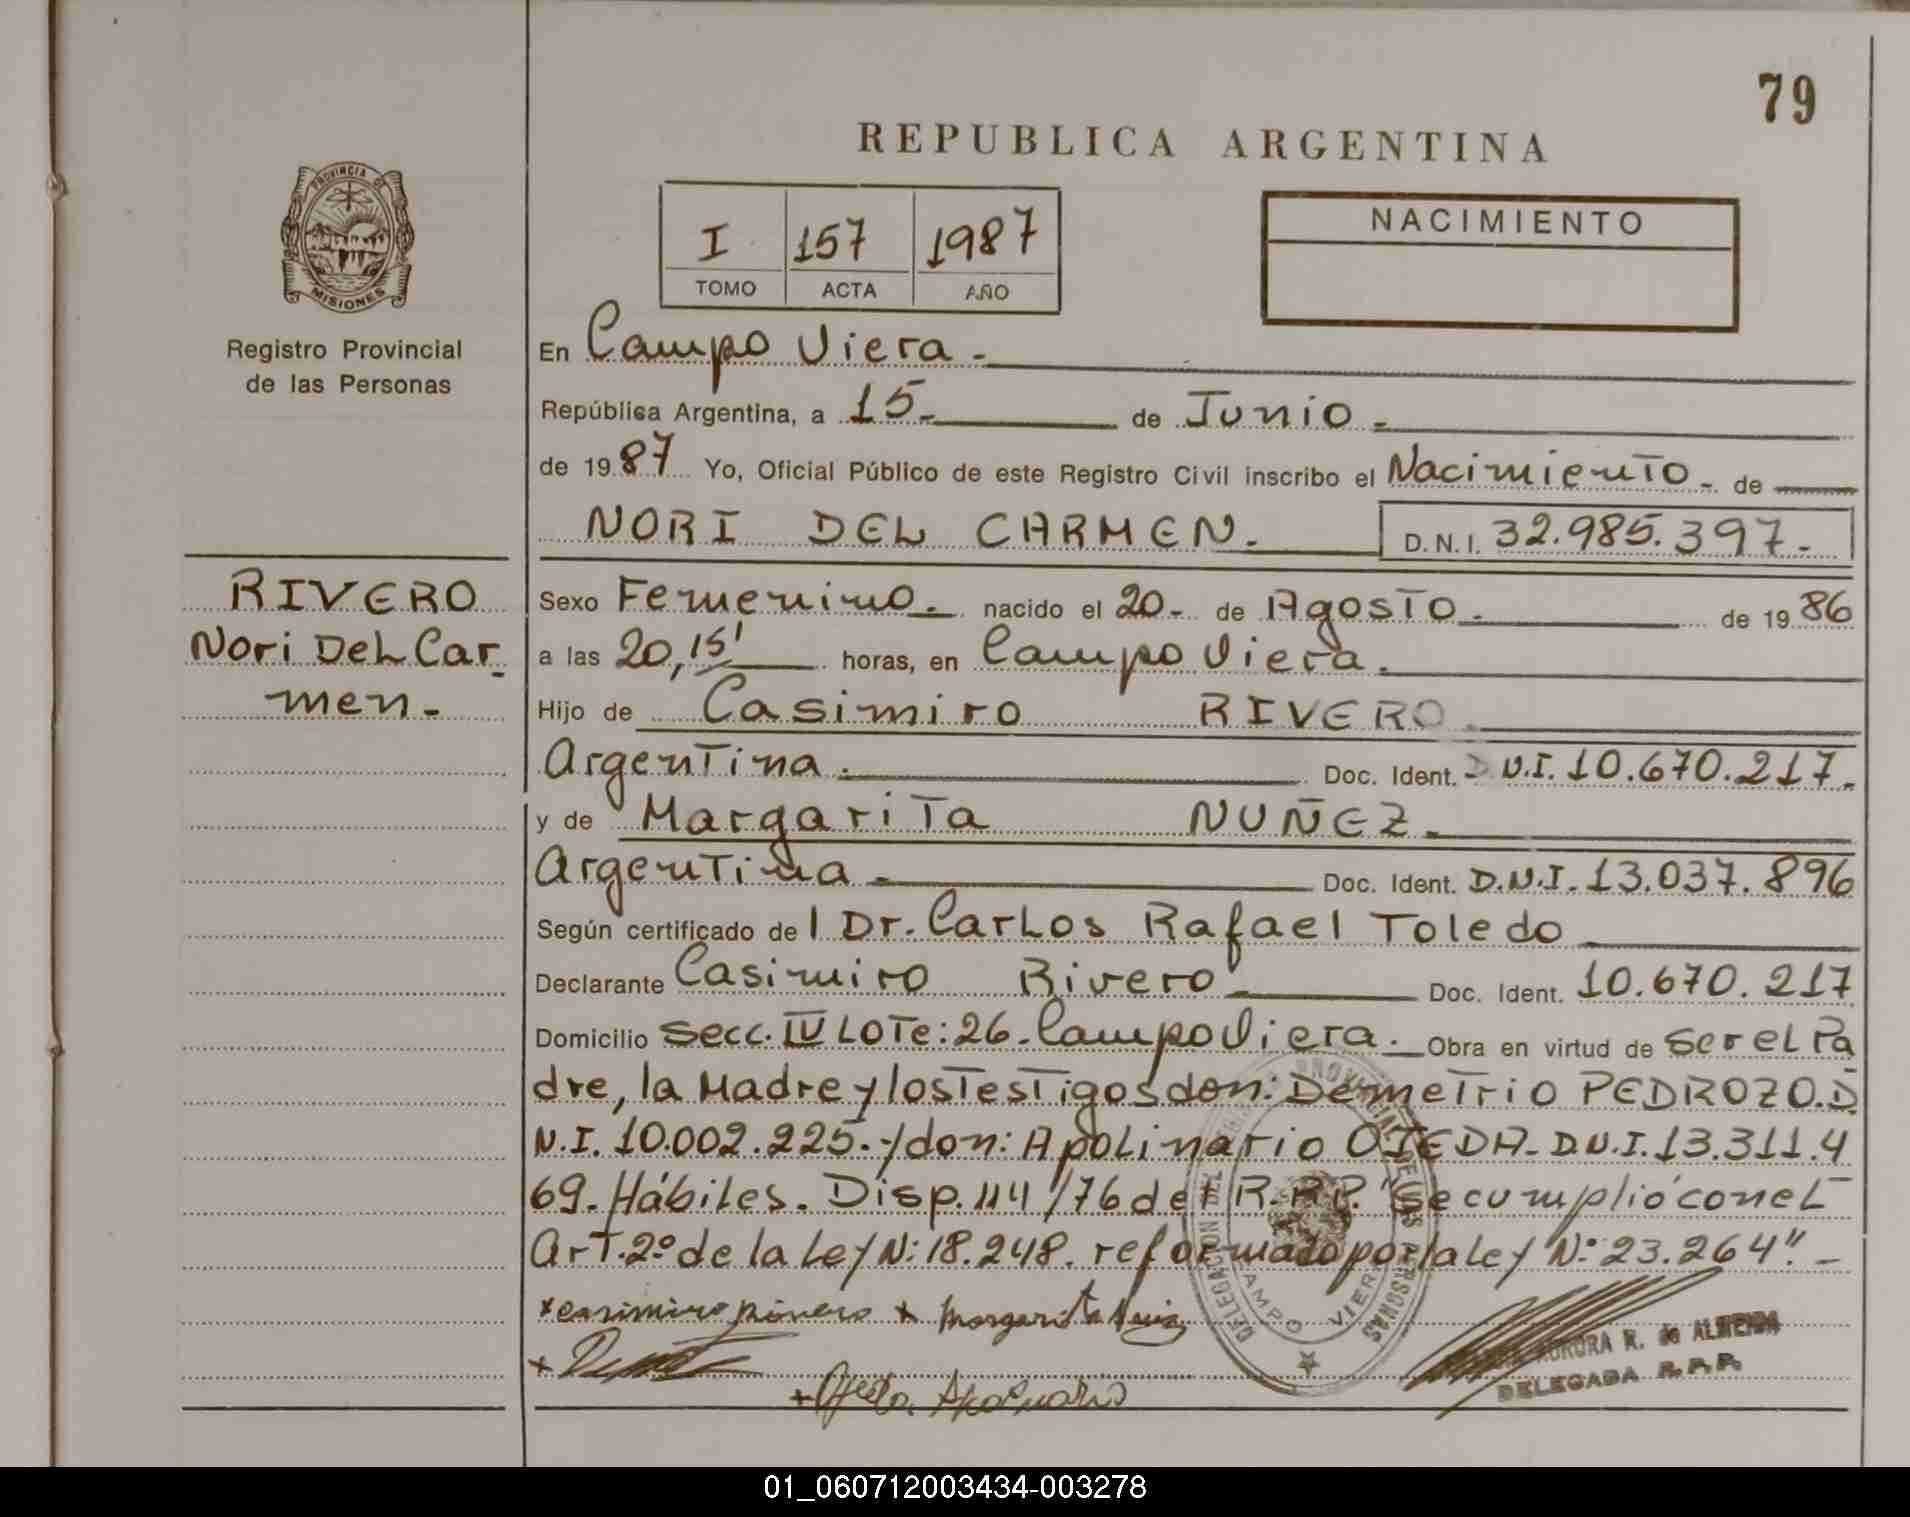 79
REPUBLICA ARGENTINA
PROVINCIA DE
MISIONES
Registro Provincial
de las Personas
I 157 1987
TOMO ACTA AÑO
NACIMIENTO
En Campo Viera.-
República Argentina, a 15.- de Junio.-
de 1987 Yo, Oficial Público de este Registro Civil inscribo el Nacimiento.- de
NORI DEL CARMEN.- D.N.I. 32.985.397.-
RIVERO
Nori Del Car
men.-
Sexo Femenino.- nacido el 20.- de Agosto.- de 1986
a las 20,15' horas, en Campo Viera.-
Hijo de Casimiro RIVERO.-
Argentina.- Doc. Ident. D.N.I. 10.670.217.-
y de Margarita NUÑEZ.-
Argentina.- Doc. Ident. D.N.I. 13.037.896
Según certificado del Dr. Carlos Rafael Toledo
Declarante Casimiro Rivero Doc. Ident. 10.670.217
Domicilio Secc. IV LOTe: 26. Campo Viera.- Obra en virtud de ser el Pa
dre, la Madre y los Testigos don: Demetrio PEDROZO. D.
N.I. 10.002.225.- y don: Apolinario OJEDA- D.N.I. 13.311.4
69. Hábiles. Disp. 114/76 del R.P.P. "Se cumplió con el
Art. 2º de la Ley N: 18.248. reformado por la Ley Nº 23.264".-
x casimiro rivero x Margarita
+
+ Ojeda Apolinario
DELEGACION DEL REGISTRO PROVINCIAL DE LAS PERSONAS
CAMPO VIERA
AURORA R. de ALMEIDA
DELEGADA R.P.P.
01_060712003434-003278